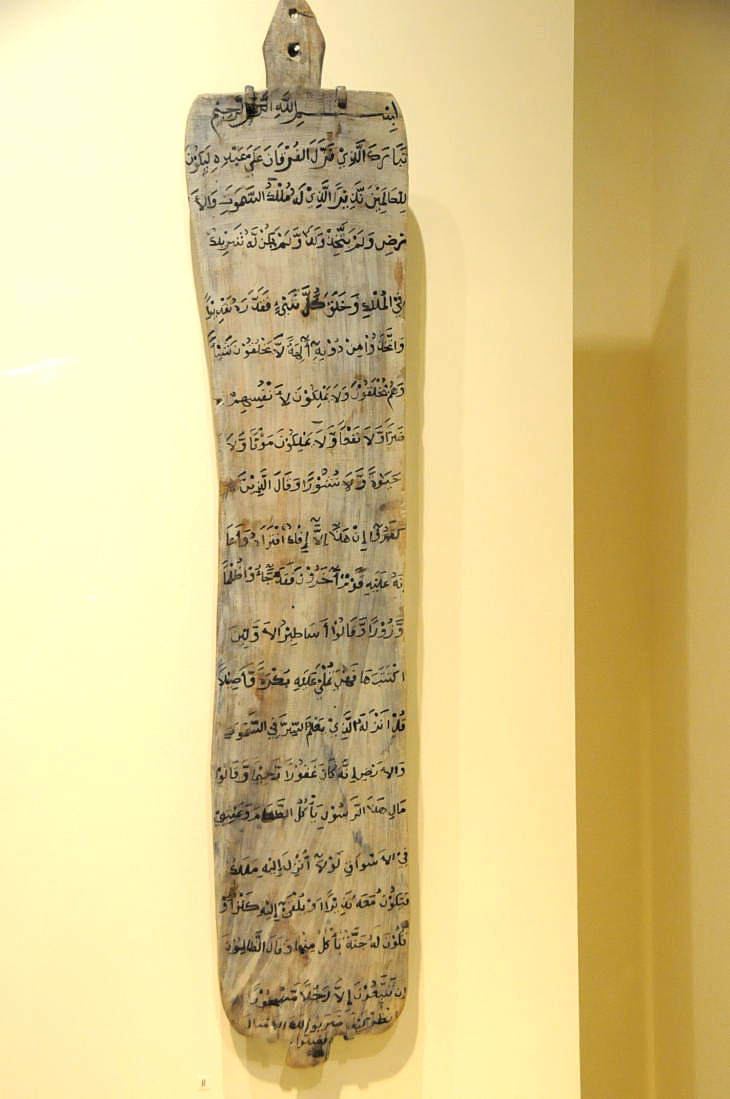 بِسْــــــمِ اللَّهِ الرَّحْمَنِ الرَّحِيْمِ
تَبَارَكَ الَّذِيْ نَزَّلَ الْفُرْقَانَ عَلَى عَبْدِهِ لِيَكُوْنَ
لِلْعَالَمِيْنَ نَذِيْرًا الَّذِيْ لَهُ مُلْكُ السَّمٰوٰتِ وَالْأَ
رْضِ وَلَمْ يَتَّخِذْ وَلَدًا وَّلَمْ يَكُنْ لَّهُ شَرِيْكٌ
فِي الْمُلْكِ وَخَلَقَ كُلَّ شَيْءٍ فَقَدَّرَهُ تَقْدِيْرًا
وَاتَّخَذُوْا مِنْ دُوْنِهِ آلِهَةً لَّا يَخْلُقُوْنَ شَيْئًا
وَّهُمْ يُخْلَقُوْنَ وَلَا يَمْلِكُوْنَ لِأَنْفُسِهِمْ
ضَرًّا وَّلَا نَفْعًا وَّلَا يَمْلِكُوْنَ مَوْتًا وَّلَا
حَيٰوةً وَّلَا نُشُوْرًا وَقَالَ الَّذِيْنَ
كَفَرُوْا إِنْ هَذَا إِلَّا إِفْكٌ افْتَرَاهُ وَأَعَا
نَهُ عَلَيْهِ قَوْمٌ آخَرُوْنَ فَقَدْ جَاءُوْا ظُلْمًا
وَّزُوْرًا وَّقَالُوْا أَسَاطِيْرُ الْأَوَّلِيْنَ
اكْتَتَبَهَا فَهِيَ تُمْلَى عَلَيْهِ بُكْرَةً وَّأَصِيْلًا
قُلْ أَنْزَلَهُ الَّذِيْ يَعْلَمُ السِّرَّ فِي السَّمٰوٰتِ
وَالْأَرْضِ إِنَّهُ كَانَ غَفُوْرًا رَّحِيْمًا وَّقَالُوْا
مَالِ هَذَا الرَّسُوْلِ يَأْكُلُ الطَّعَامَ وَيَمْشِيْ
فِي الْأَسْوَاقِ لَوْلَا أُنْزِلَ إِلَيْهِ مَلَكٌ
فَيَكُوْنَ مَعَهُ نَذِيْرًا أَوْ يُلْقَى إِلَيْهِ كَنْزٌ أَوْ
تَكُوْنُ لَهُ جَنَّةٌ يَأْكُلُ مِنْهَا وَقَالَ الظَّالِمُوْنَ
إِنْ تَتَّبِعُوْنَ إِلَّا رَجُلًا مَّسْحُوْرًا
انْظُرْ كَيْفَ ضَرَبُوْا لَكَ الْأَمْثَالَ